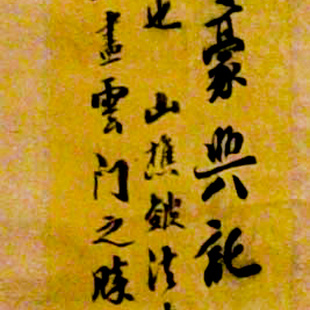 豪興託
也 山樵皴法
盡雲門之勝